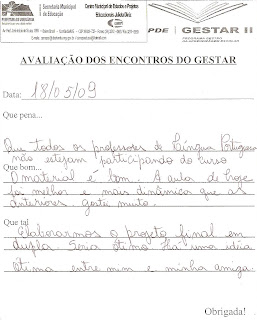 Secretaria Municipal
de Educação
Centro Municipal de Estudos e Projetos
Educacionais Julieta Diniz
CEMEPE
PDE | GESTAR II
AVALIAÇÃO DOS ENCONTROS DO GESTAR
Data: 18/05/09
Que pena...
Que todos os professores de Língua Portuguesa
não estejam participando do curso
Que bom...
O material é bom. A aula de hoje
foi melhor e mais dinâmica que as
anteriores. gostei muito.
Que tal
Elaborarmos o projeto final em
dupla. Seria ótimo. Há uma idéia
ótima entre mim e minha amiga.
Obrigada!